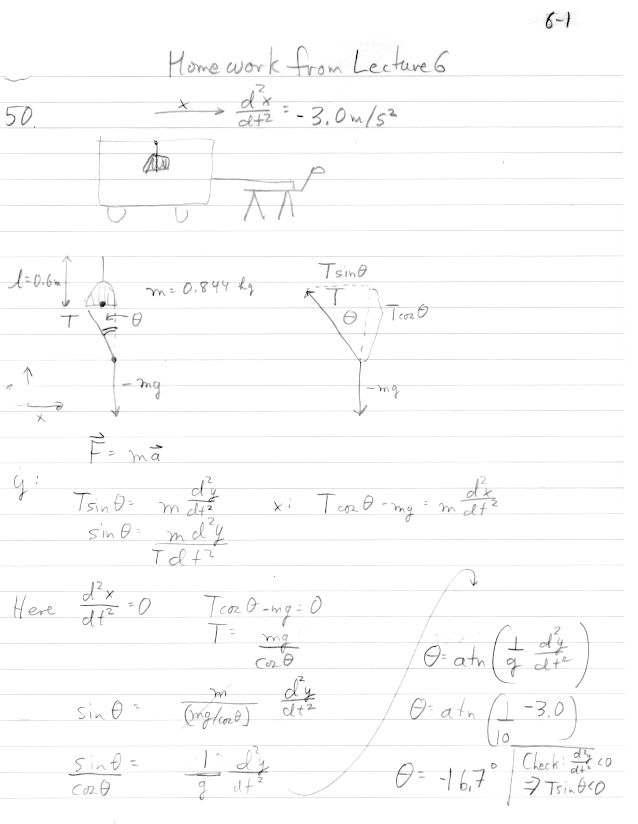 6-1
Homework from Lecture 6
50.
x → d²x/dt² = -3.0 m/s²
l = 0.6m
m = 0.844 kg
T
θ
-mg
x
T sinθ
T
θ
T cosθ
-mg
F⃗ = ma⃗
y:
T sinθ = m d²y/dt²
x: T cosθ - mg = m d²x/dt²
sinθ = m d²y/T dt²
Here d²x/dt² = 0
T cosθ - mg = 0
T = mg/cosθ
sinθ = m/(mg/cosθ) d²y/dt²
sinθ/cosθ = 1/g d²y/dt²
θ = atn (1/g d²y/dt²)
θ = atn (1/10 -3.0)
θ = -16.7°
Check: d²y/dt² <0
⇒ T sinθ<0